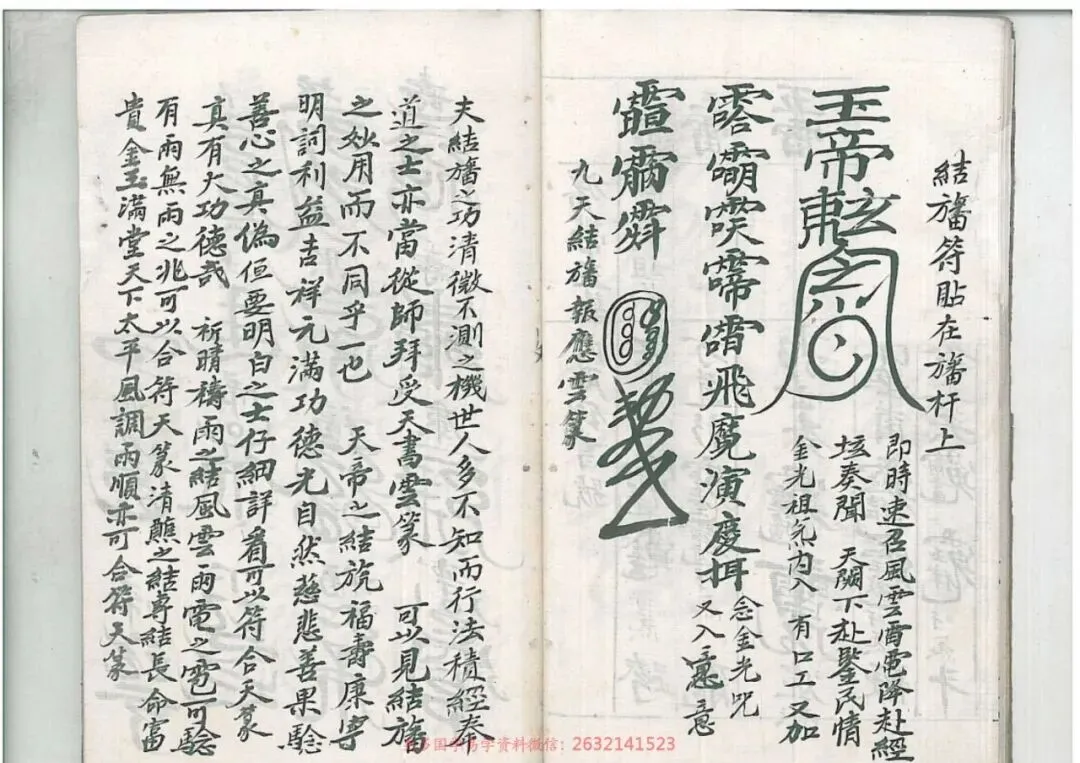 結旛符貼在旛杆上
玉帝
即時速召風雲雷電降赴經
垓奏聞 天闕下赴鑒民情
金光祖炁內入 有口工又加
飛魔演慶
念金光咒
又入 意
九天結旛報應雲篆
夫結旛之功清微不測之機世人多不知而行法積經奉
道之士亦當從師拜受天書雲篆 可以見結旛
之妙用而不同乎一也 天帝之結旒福壽康寧
明詞利益吉祥元滿功德光自然慈悲善果驗
善心之真偽但要明白之士仔細詳看可以符合天篆
真有大功德哉 祈晴禱雨之結風雲雨電之雹可驗
有雨無雨之兆可以合符天篆清醮之結專結長命富
貴金玉滿堂天下太平風調雨順亦可合符天篆
国学易学资料微信：2632141523